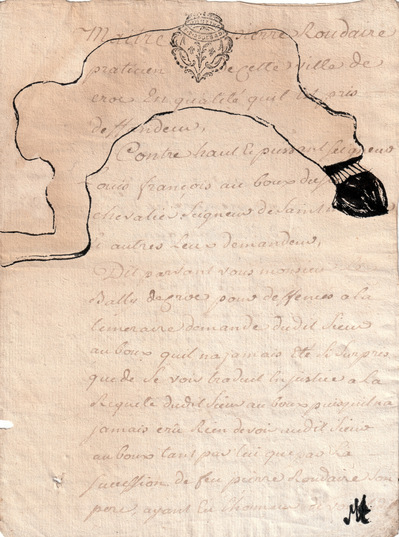 Maitre Pierre Roudaire
praticien de cette ville de
croc En qualité quil est pris
deffendeur,
Contre haut Et puissant seigneur
Louis francois auboux du
chevalier seigneur de Saint
& autres Lieux demandeur,
Dit pardevant vous monsieur
pour deffences a la
temeraire demande dudit Sieur
auboux quil na jamais Eté Si Surpris
que de Se voir traduit En justice a la
Requete dudit Sieur auboux puisquil na
jamais crû Rien devoir audit Sieur
auboux tant par lui que par La
succession de feu pierre Roudaire Son
pere, ayant Eu lhonneur de